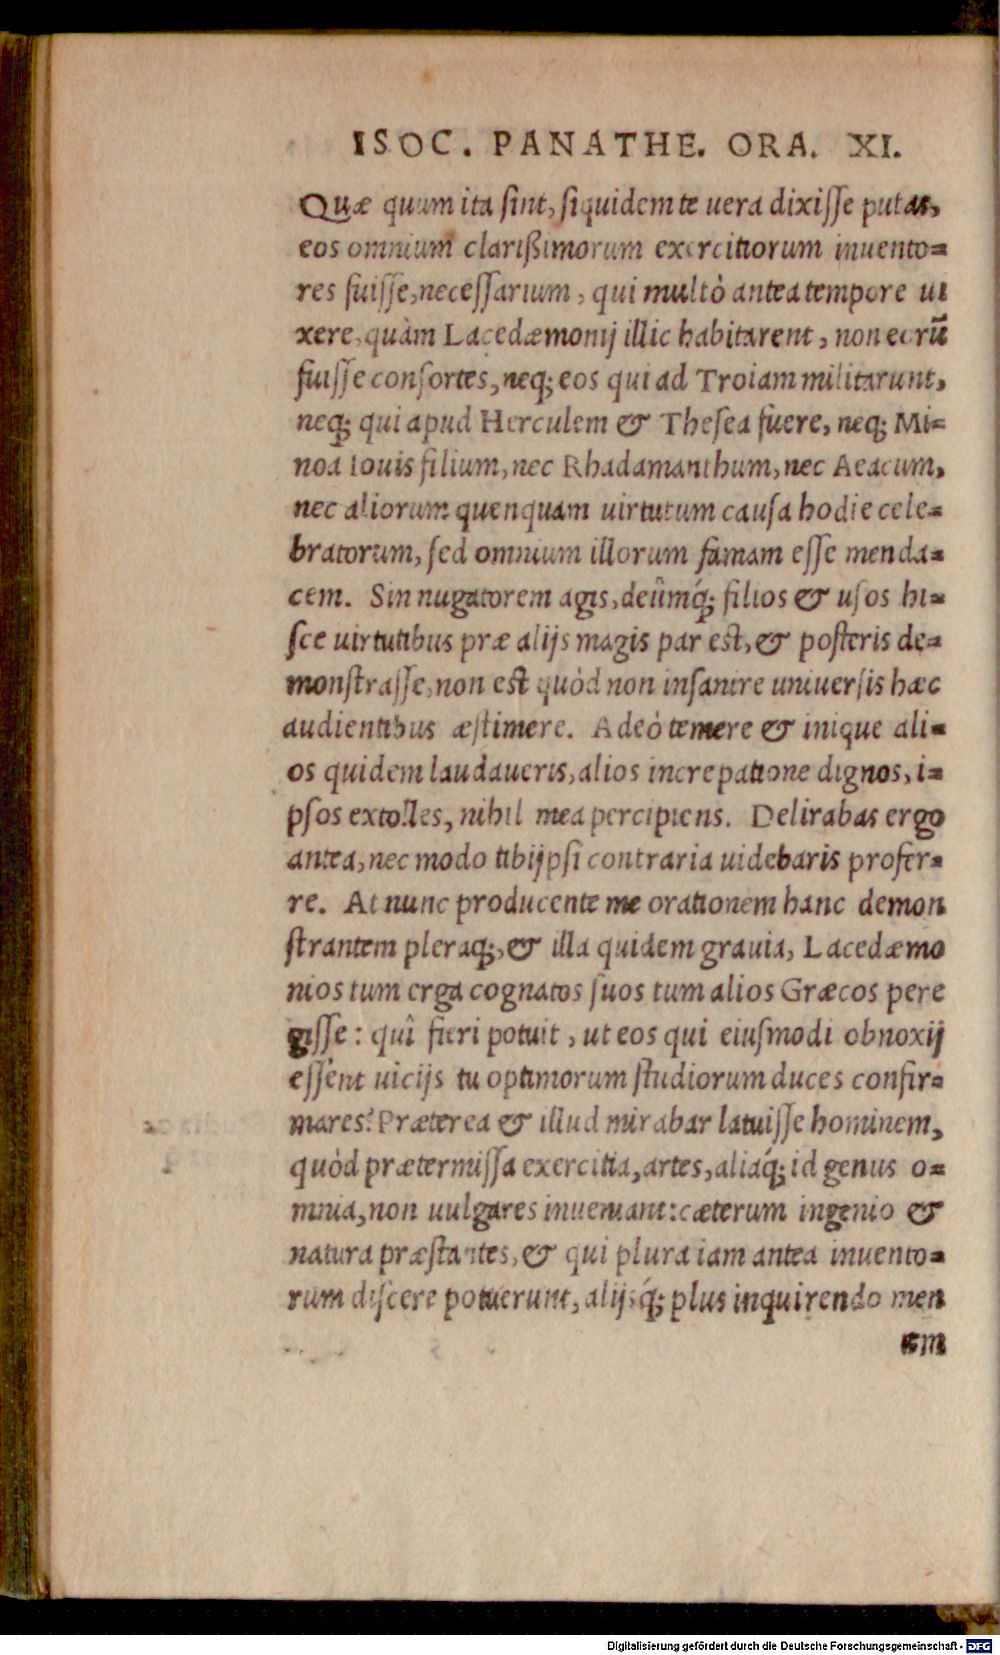 ISOC. PANATHE. ORA. XI.
Quæ quum ita ſint, ſiquidem te uera dixiſſe putas,
eos omnium clarißimorum exercitiorum inuento=
res fuiſſe, neceſſarium, qui multò antea tempore ui
xere, quàm Lacedæmonij illic habitarent, non eorũ
fuiſſe conſortes, neq; eos qui ad Troiam militarunt,
neq; qui apud Herculem & Theſea fuere, neq; Mi=
noa Iouis filium, nec Rhadamanthum, nec Aeacum,
nec aliorum quenquam uirtutum cauſa hodie cele=
bratorum, ſed omnium illorum famam eſſe menda=
cem. Sin nugatorem agis, deûmq́; filios & uſos hi=
ſce uirtutibus præ alijs magis par eſt, & poſteris de=
monſtraſſe, non eſt quòd non inſanire uniuerſis hæc
audientibus æſtimere. Adeò temere & inique ali=
os quidem laudaueris, alios increpatione dignos, i=
pſos extolles, nihil mea percipiens. Delirabas ergo
antea, nec modo tibijpſi contraria uidebaris profer=
re. At nunc producente me orationem hanc demon
ſtrantem pleraq;, & illa quidem grauia, Lacedæmo
nios tum erga cognatos ſuos tum alios Græcos pere
giſſe: quî fieri potuit, ut eos qui eiuſmodi obnoxij
eſſent uicijs tu optimorum ſtudiorum duces confir=
mares? Præterea & illud mirabar latuiſſe hominem,
quòd prætermiſſa exercitia, artes, aliaq́; id genus o=
mnia, non uulgares inueniant: cæterum ingenio &
natura præſtantes, & qui plura iam antea inuento=
rum diſcere potuerunt, alijsq́; plus inquirendo men
em
Digitalisierung gefördert durch die Deutsche Forschungsgemeinschaft - DFG